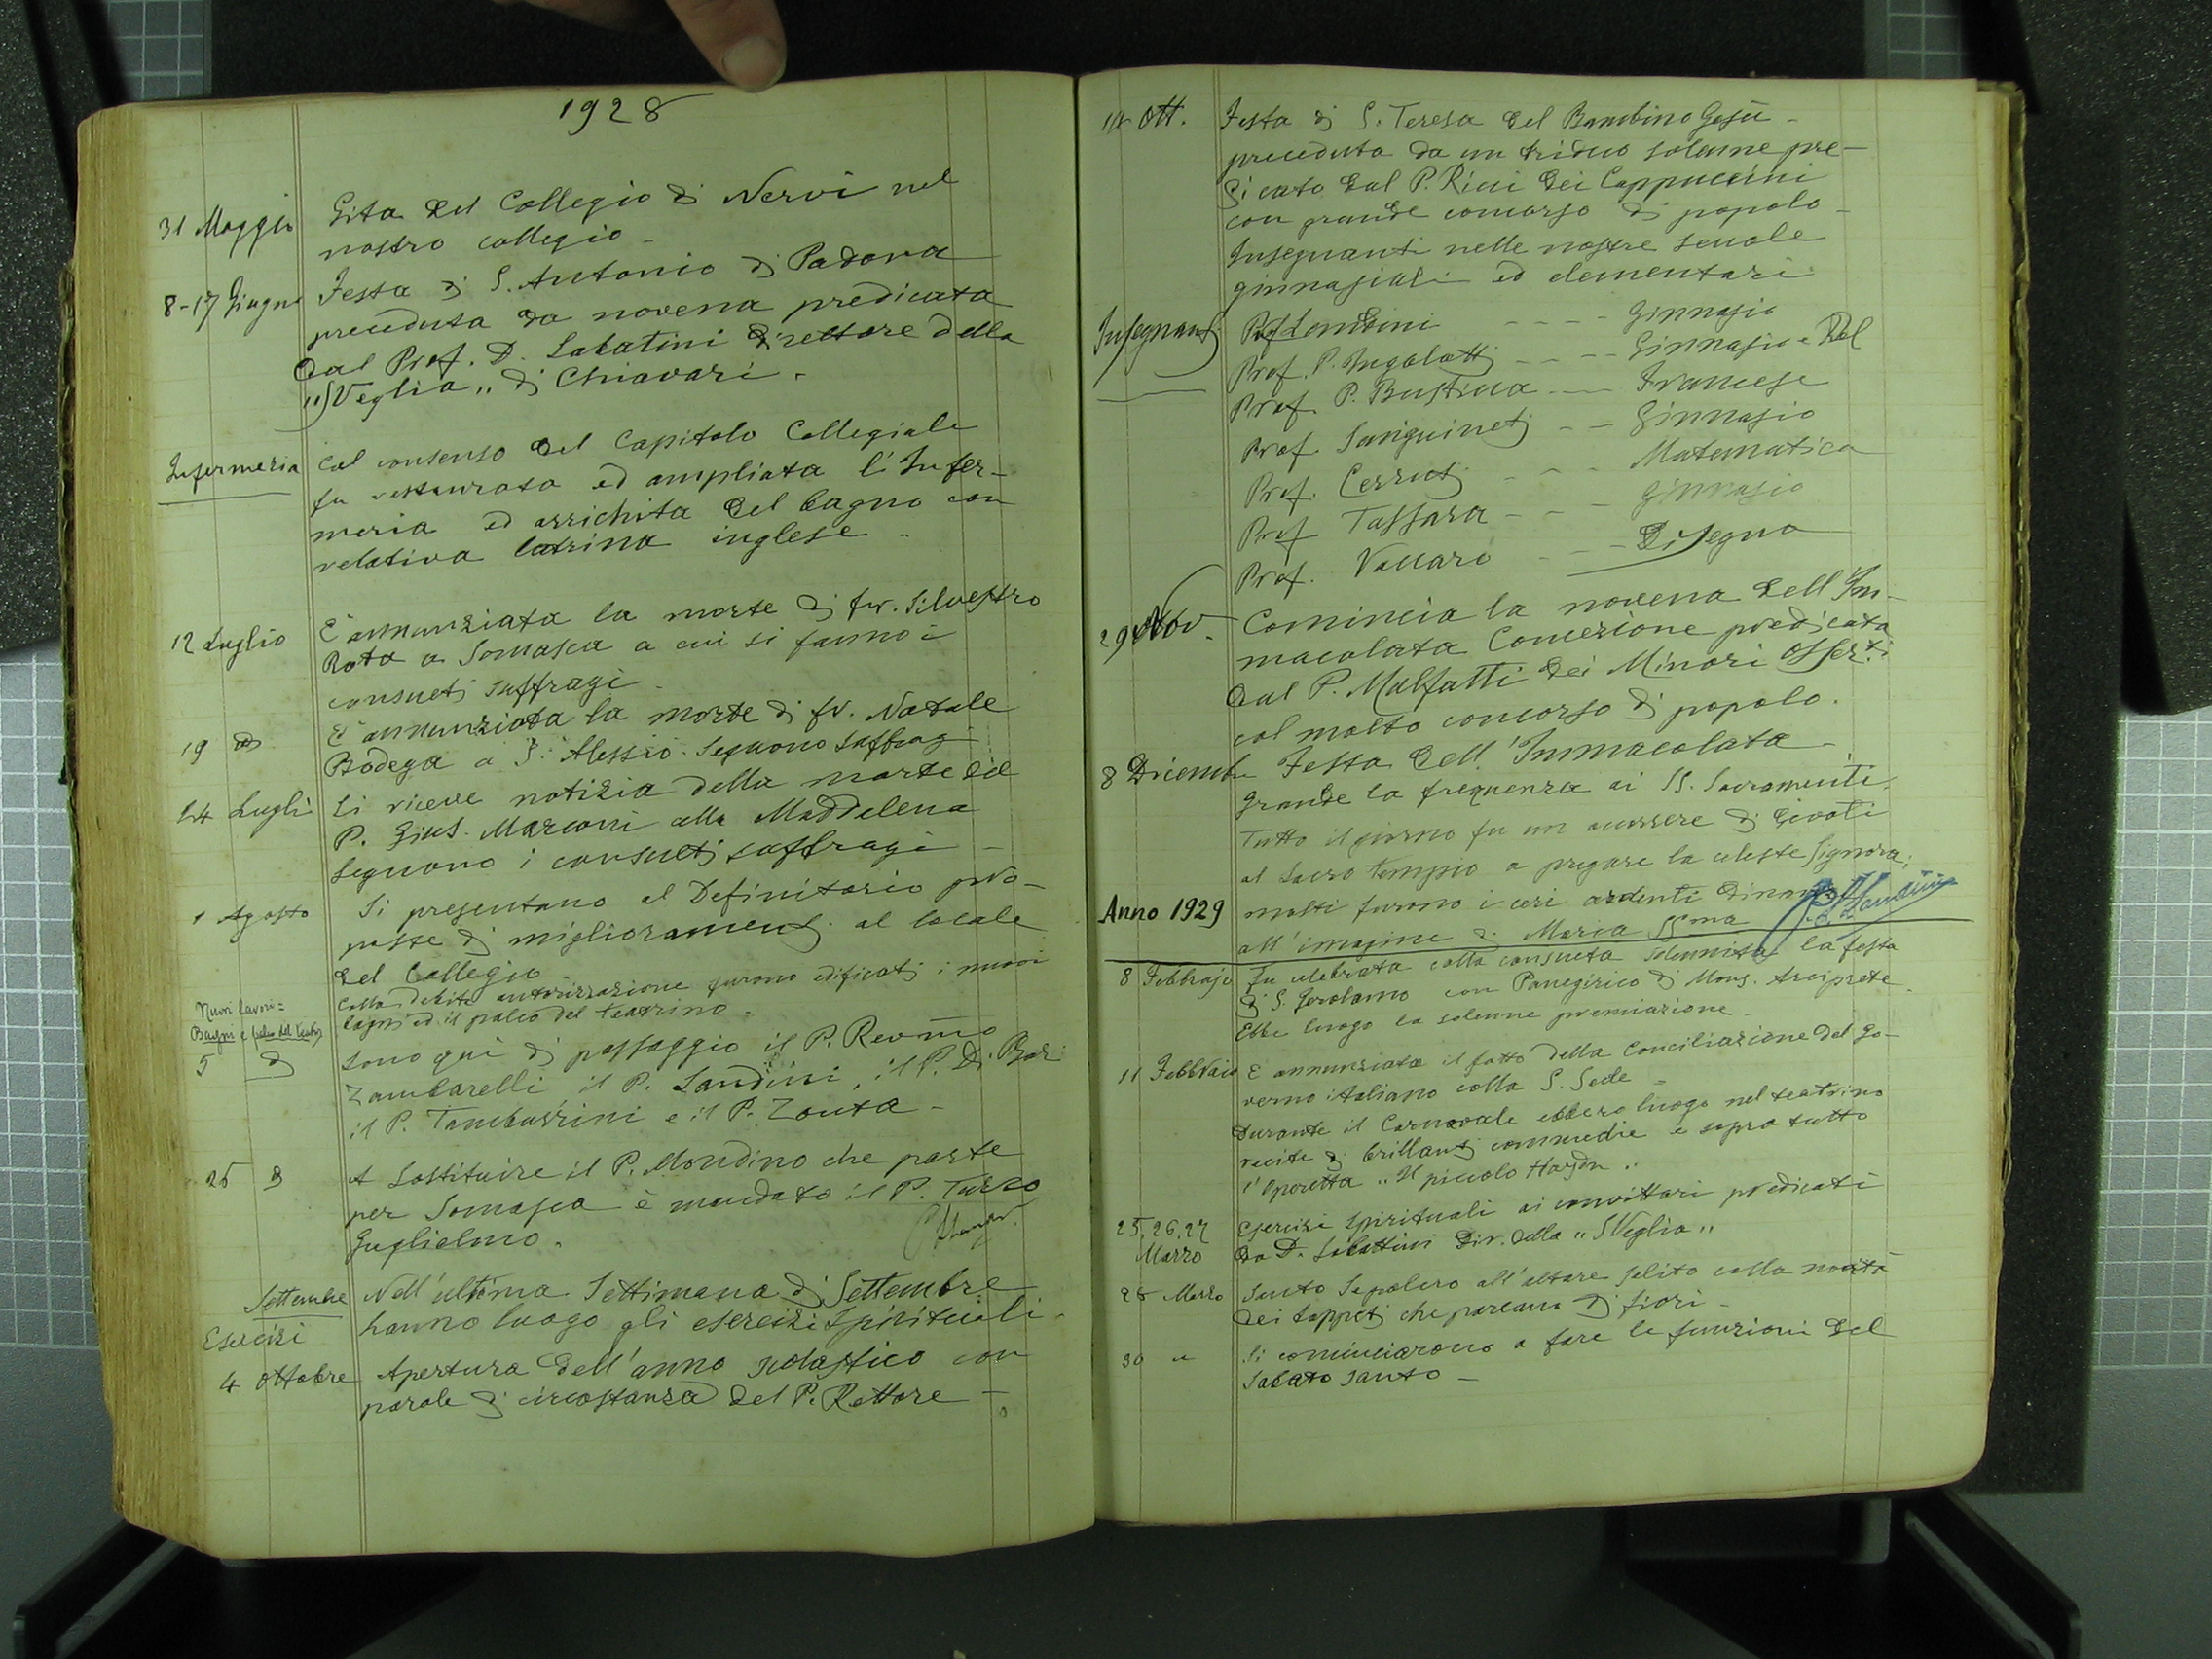 1928
31 Maggio Gita del Collegio di Nervi nel
nostro collegio -
8-17 Giugno Festa di S. Antonio di Padova
preceduta da novena predicata
dal Prof. D. Sabatini direttore della
"SVeglia" di Chiavari.
Infermeria Col consenso del Capitolo Collegiale
fu restaurata ed ampliata l'Infer-
meria ed arrichita del bagno con
relativa latrina inglese -
12 Luglio È annunziata la morte di fr. Silvestro
Rota a Somasca a cui si fanno i
consueti suffragi -
19 È annunziata la morte di fr. Natale
Bodega a S. Alessio. Seguono suffragi
24 Luglio Si riceve notizia della morte del
P. Gius. Marconi alla Maddalena
Seguono i consueti suffragi -
1 Agosto Si presentano al Definitorio pro-
poste di miglioramenti al locale
del Collegio
Nuovi lavori = Colla debita autorizzazione furono edificati i nuovi
Bagni e palco del teatro bagni ed il palco del teatrino -
5 d Sono qui di passaggio il P. Revmo
Zambarelli, il P. Landini, il P. Di Bari
il P. Tamburrini e il P. Zonta -
25 A Sostituire il P. Mondino che parte
per Somasca è mandato il P. Turco
Guglielmo.
Settembre Nell'ultima Settimana di Settembre
Esercizi hanno luogo gli esercizi Spirituali -
4 Ottobre Apertura dell'anno scolastico con
parole di circostanza del P. Rettore -
Ott. Festa di S. Teresa del Bambino Gesù -
preceduta da un triduo solenne pre-
dicato dal P. Ricci dei Cappuccini
con grande concorso di popolo -
Insegnanti nelle nostre scuole
ginnasiali ed elementari
Insegnanti Prof Lombini - - - - Ginnasio
Prof. P. Ingolotti - - - Ginnasio e Rel
Prof. P. Bustina - - - Francese
Prof Sanguineti - - Ginnasio
Prof. Cerruti - - Matematica
Prof Tassara - - - Ginnasio
Prof. Vaccaro - - - Disegno
29 Nov. Comincia la novena dell'Im-
macolata Concezione predicata
dal P. Malfatti dei Minori Osser.ti
col molto concorso di popolo.
8 Dicembre Festa dell'Immacolata -
Grande la frequenza ai SS. Sacramenti.
Tutto il giorno fu un accorrere di divoti
al Sacro tempio a pregare la celeste Signora;
molti furono i ceri ardenti dinanzi
all'imagine di Maria SSma
Anno 1929
8 Febbrajo Fu celebrata colla consueta solennità la festa
di S. Gerolamo con Panegirico di Mons. Arciprete.
Ebbe luogo la solenne premiazione -
11 Febbraio È annunziata il fatto della Conciliazione del Go-
verno italiano colla S. Sede -
Durante il Carnevale ebbero luogo nel teatrino
recite di brillanti commedie e sopra tutto
l'operetta "Il piccolo Haydn".
25, 26, 27 Esercizi Spirituali ai convittori predicati
Marzo da D. Sabattini Dir. della "SVeglia"
28 Marzo Santo Sepolcro all'altare solito colla novità
dei tappeti che parevano di fiori -
30 " Si cominciarono a fare le funzioni del
Sabato Santo -